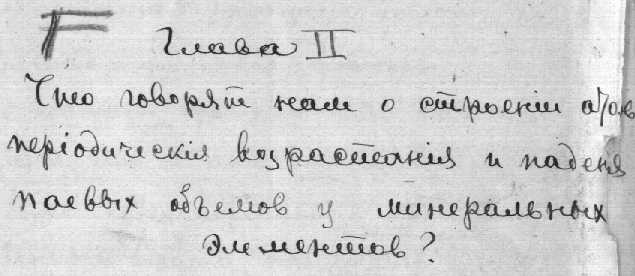 Глава II
Что говорят нам о строеніи атомов
періодическія возрастанія и паденія
паевых объемов у минеральных
элементов?